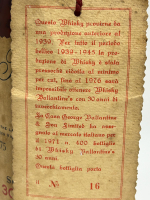 Questo Whisky proviene da
una produzione anteriore al
1939. Per tutto il periodo
bellico 1939-1945 la
produzione di Whisky è stata
pressochè ridotta al minimo
per cui, fino al 1960 sarà
impossibile ottenere Whisky
Ballantine's con 30 anni di
invecchiamento.
La Casa George Ballantine
& Son Limited ha
al mercato italiano per
il 1971 n. 400 bottiglie
di Whisky Ballantine's
30 anni.
Questa bottiglia porta
il N° 16